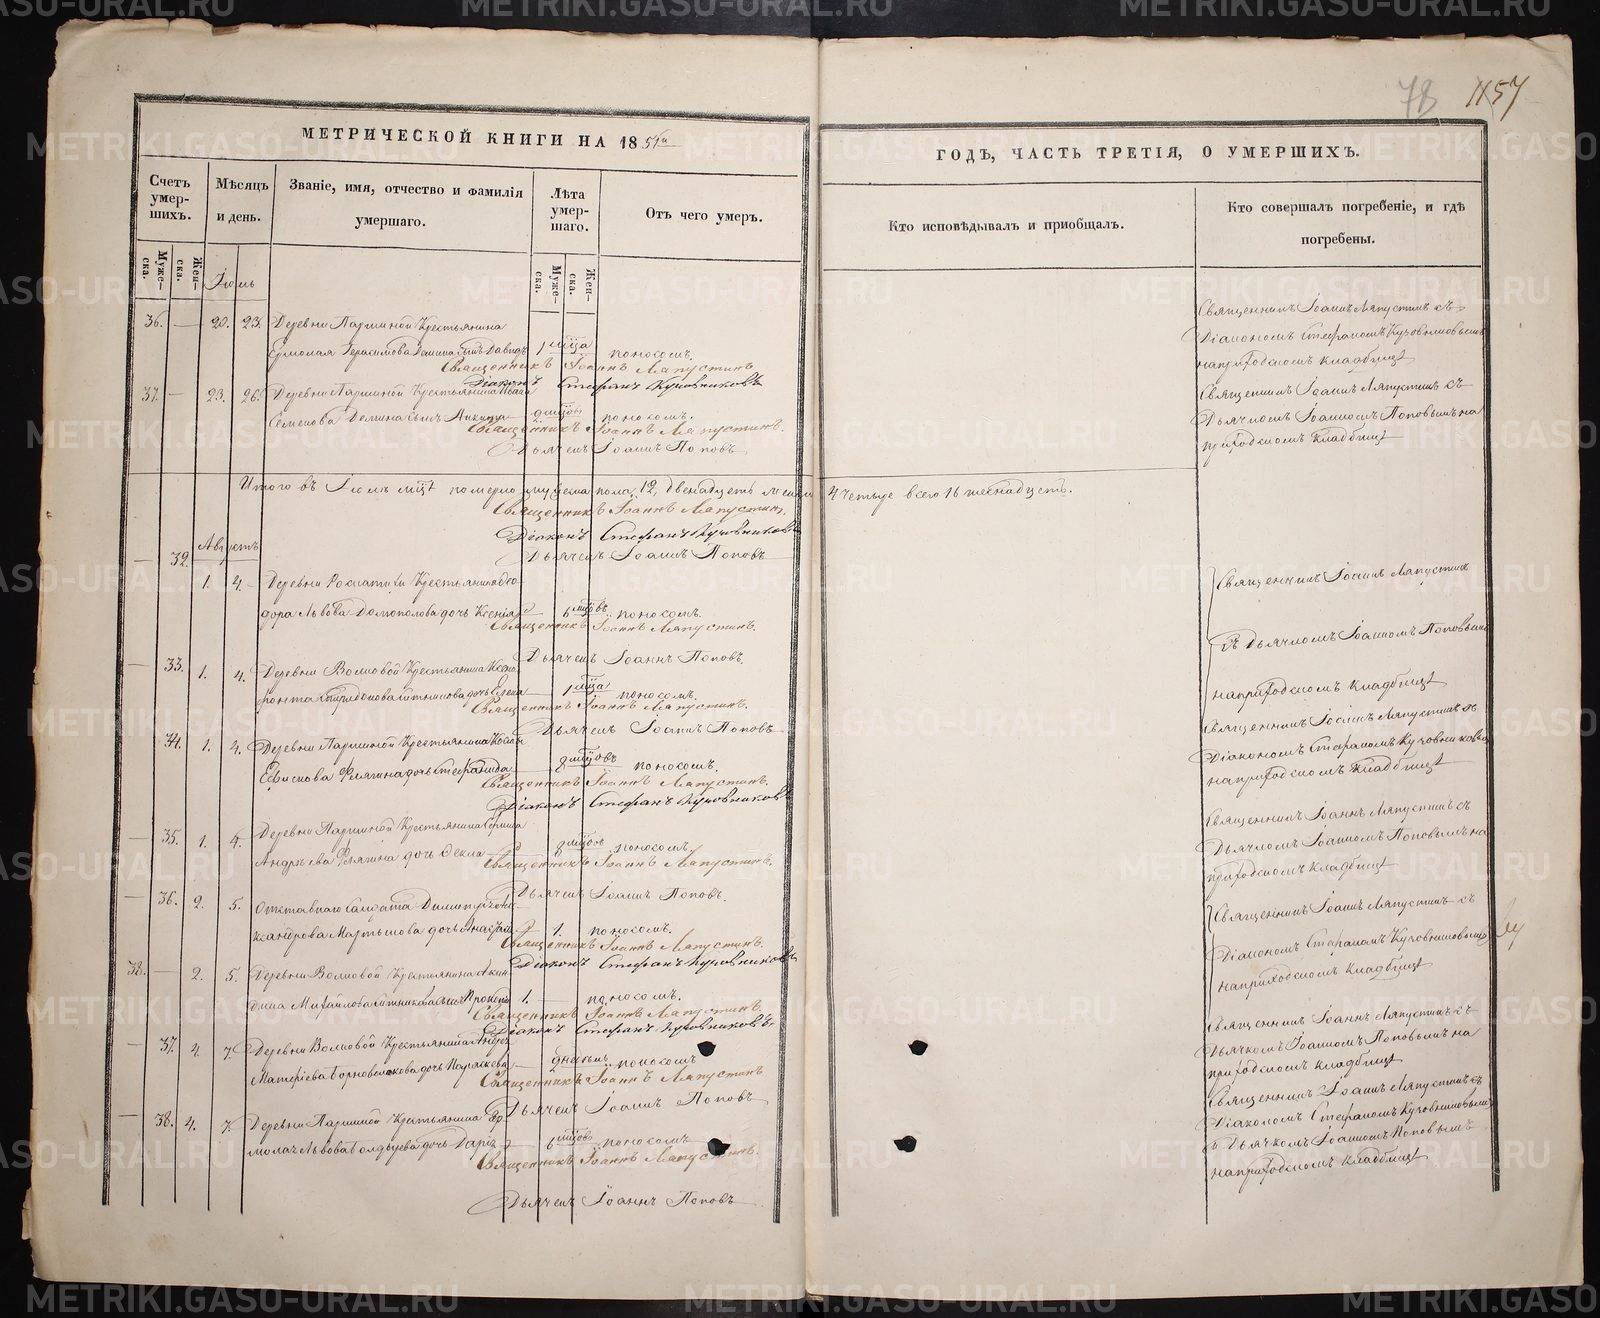 78 1157
МЕТРИЧЕСКОЙ КНИГИ НА 1851й
ГОДЪ, ЧАСТЬ ТРЕТІЯ, О УМЕРШИХЪ.
Счетъ умер-шихъ.
Мѣсяцъ и день.
Званіе, имя, отчество и фамилія умершаго.
Лѣта умер-шаго.
Отъ чего умер.
Кто исповѣдывалъ и приобщалъ.
Кто совершалъ погребеніе, и гдѣ погребены.
Муже-ска.
Жен-ска.
Муже-ска.
Жен-ска.
Іюль
36. — 20. 23. Деревни Паршиной Крестьянина
Ермолая Герасимова сынъ Давидъ 1 мца поносомъ.
Священникъ Іоаннъ Ляпустинъ
Діаконъ Стефанъ Кузовниковъ
Священникъ Іоаннъ Ляпустинъ съ
Діакономъ Стефаномъ Кузовниковымъ
на приходскомъ кладбищѣ
37. — 23. 26. Деревни Паршиной Крестьянина
Семенова Демина сынъ Никита поносомъ.
Священникъ Іоаннъ Ляпустинъ.
Дьячекъ Іоаннъ Поповъ
Священникъ Іоаннъ Ляпустинъ съ
Дьячкомъ Іоанномъ Поповымъ на
приходскомъ кладбищѣ
Итого въ Іюлѣ мцѣ померло мужеска пола 12, двенадцать женска 4 четыре всего 16 шестнадцать.
Священникъ Іоаннъ Ляпустинъ.
Діаконъ Стефанъ Кузовниковъ
Дьячекъ Іоаннъ Поповъ
Августъ
— 32. 1. 4. Деревни Крестьянина Фео-
дора Львова дочь Ксенія 6 мцовъ поносомъ.
Священникъ Іоаннъ Ляпустинъ.
Дьячекъ Іоаннъ Поповъ.
Священникъ Іоаннъ Ляпустинъ
съ Дьячкомъ Іоанномъ Поповымъ
на приходскомъ кладбищѣ
— 33. 1. 4. Деревни Волковой Крестьянина Ксено-
фонта Спиридонова Ситникова дочь Елена 1 мца поносомъ.
Священникъ Іоаннъ Ляпустинъ.
Дьячекъ Іоаннъ Поповъ
Священникъ Іоаннъ Ляпустинъ съ
Діакономъ Стефаномъ Кузовниковымъ
на приходскомъ кладбищѣ
34. 1. 4. Деревни Паршиной Крестьянина
дочь Стефанида мцовъ поносомъ.
Священникъ Іоаннъ Ляпустинъ.
Діаконъ Стефанъ Кузовниковъ
— 35. 1. 4. Деревни Паршиной Крестьянина
Андрѣева дочь Фекла мцовъ поносомъ.
Священникъ Іоаннъ Ляпустинъ.
Дьячекъ Іоаннъ Поповъ.
Священникъ Іоаннъ Ляпустинъ съ
Дьячкомъ Іоанномъ Поповымъ на
приходскомъ кладбищѣ
— 36. 2. 5. Отставнаго Солдата Димитрія Але-
ксандрова Мартышова дочь 1. поносомъ.
Священникъ Іоаннъ Ляпустинъ.
Діаконъ Стефанъ Кузовниковъ
Священникъ Іоаннъ Ляпустинъ съ
Діакономъ Стефаномъ Кузовниковымъ
на приходскомъ кладбищѣ
38. — 2. 5. Деревни Волковой Крестьянина
Михайлова Ситникова сынъ 1. — поносомъ.
Священникъ Іоаннъ Ляпустинъ
Діаконъ Стефанъ Кузовниковъ
Священникъ Іоаннъ Ляпустинъ съ
Дьячкомъ Іоанномъ Поповымъ на
приходскомъ кладбищѣ
— 37. 4. 7. Деревни Волковой Крестьянина Андрея
дочь поносомъ
Священникъ Іоаннъ Ляпустинъ
Дьячекъ Іоаннъ Поповъ
— 38. 4. 7. Деревни Паршиной Крестьянина Ер-
молая Львова дочь Дарія 6 мцовъ поносомъ
Священникъ Іоаннъ Ляпустинъ.
Дьячекъ Іоаннъ Поповъ
Священникъ Іоаннъ Ляпустинъ съ
Діакономъ Стефаномъ Кузовниковымъ
съ Дьячкомъ Іоанномъ Поповымъ
на приходскомъ кладбищѣ
METRIKI.GASO-URAL.RU